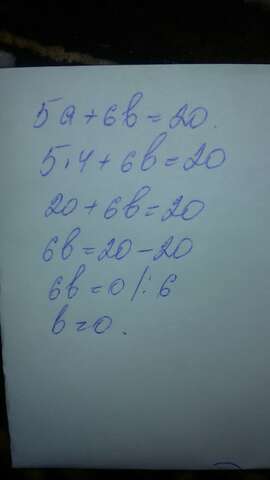 5a + 6b = 20.
5·4 + 6b = 20
20 + 6b = 20
6b = 20 - 20
6b = 0 /: 6
b = 0.